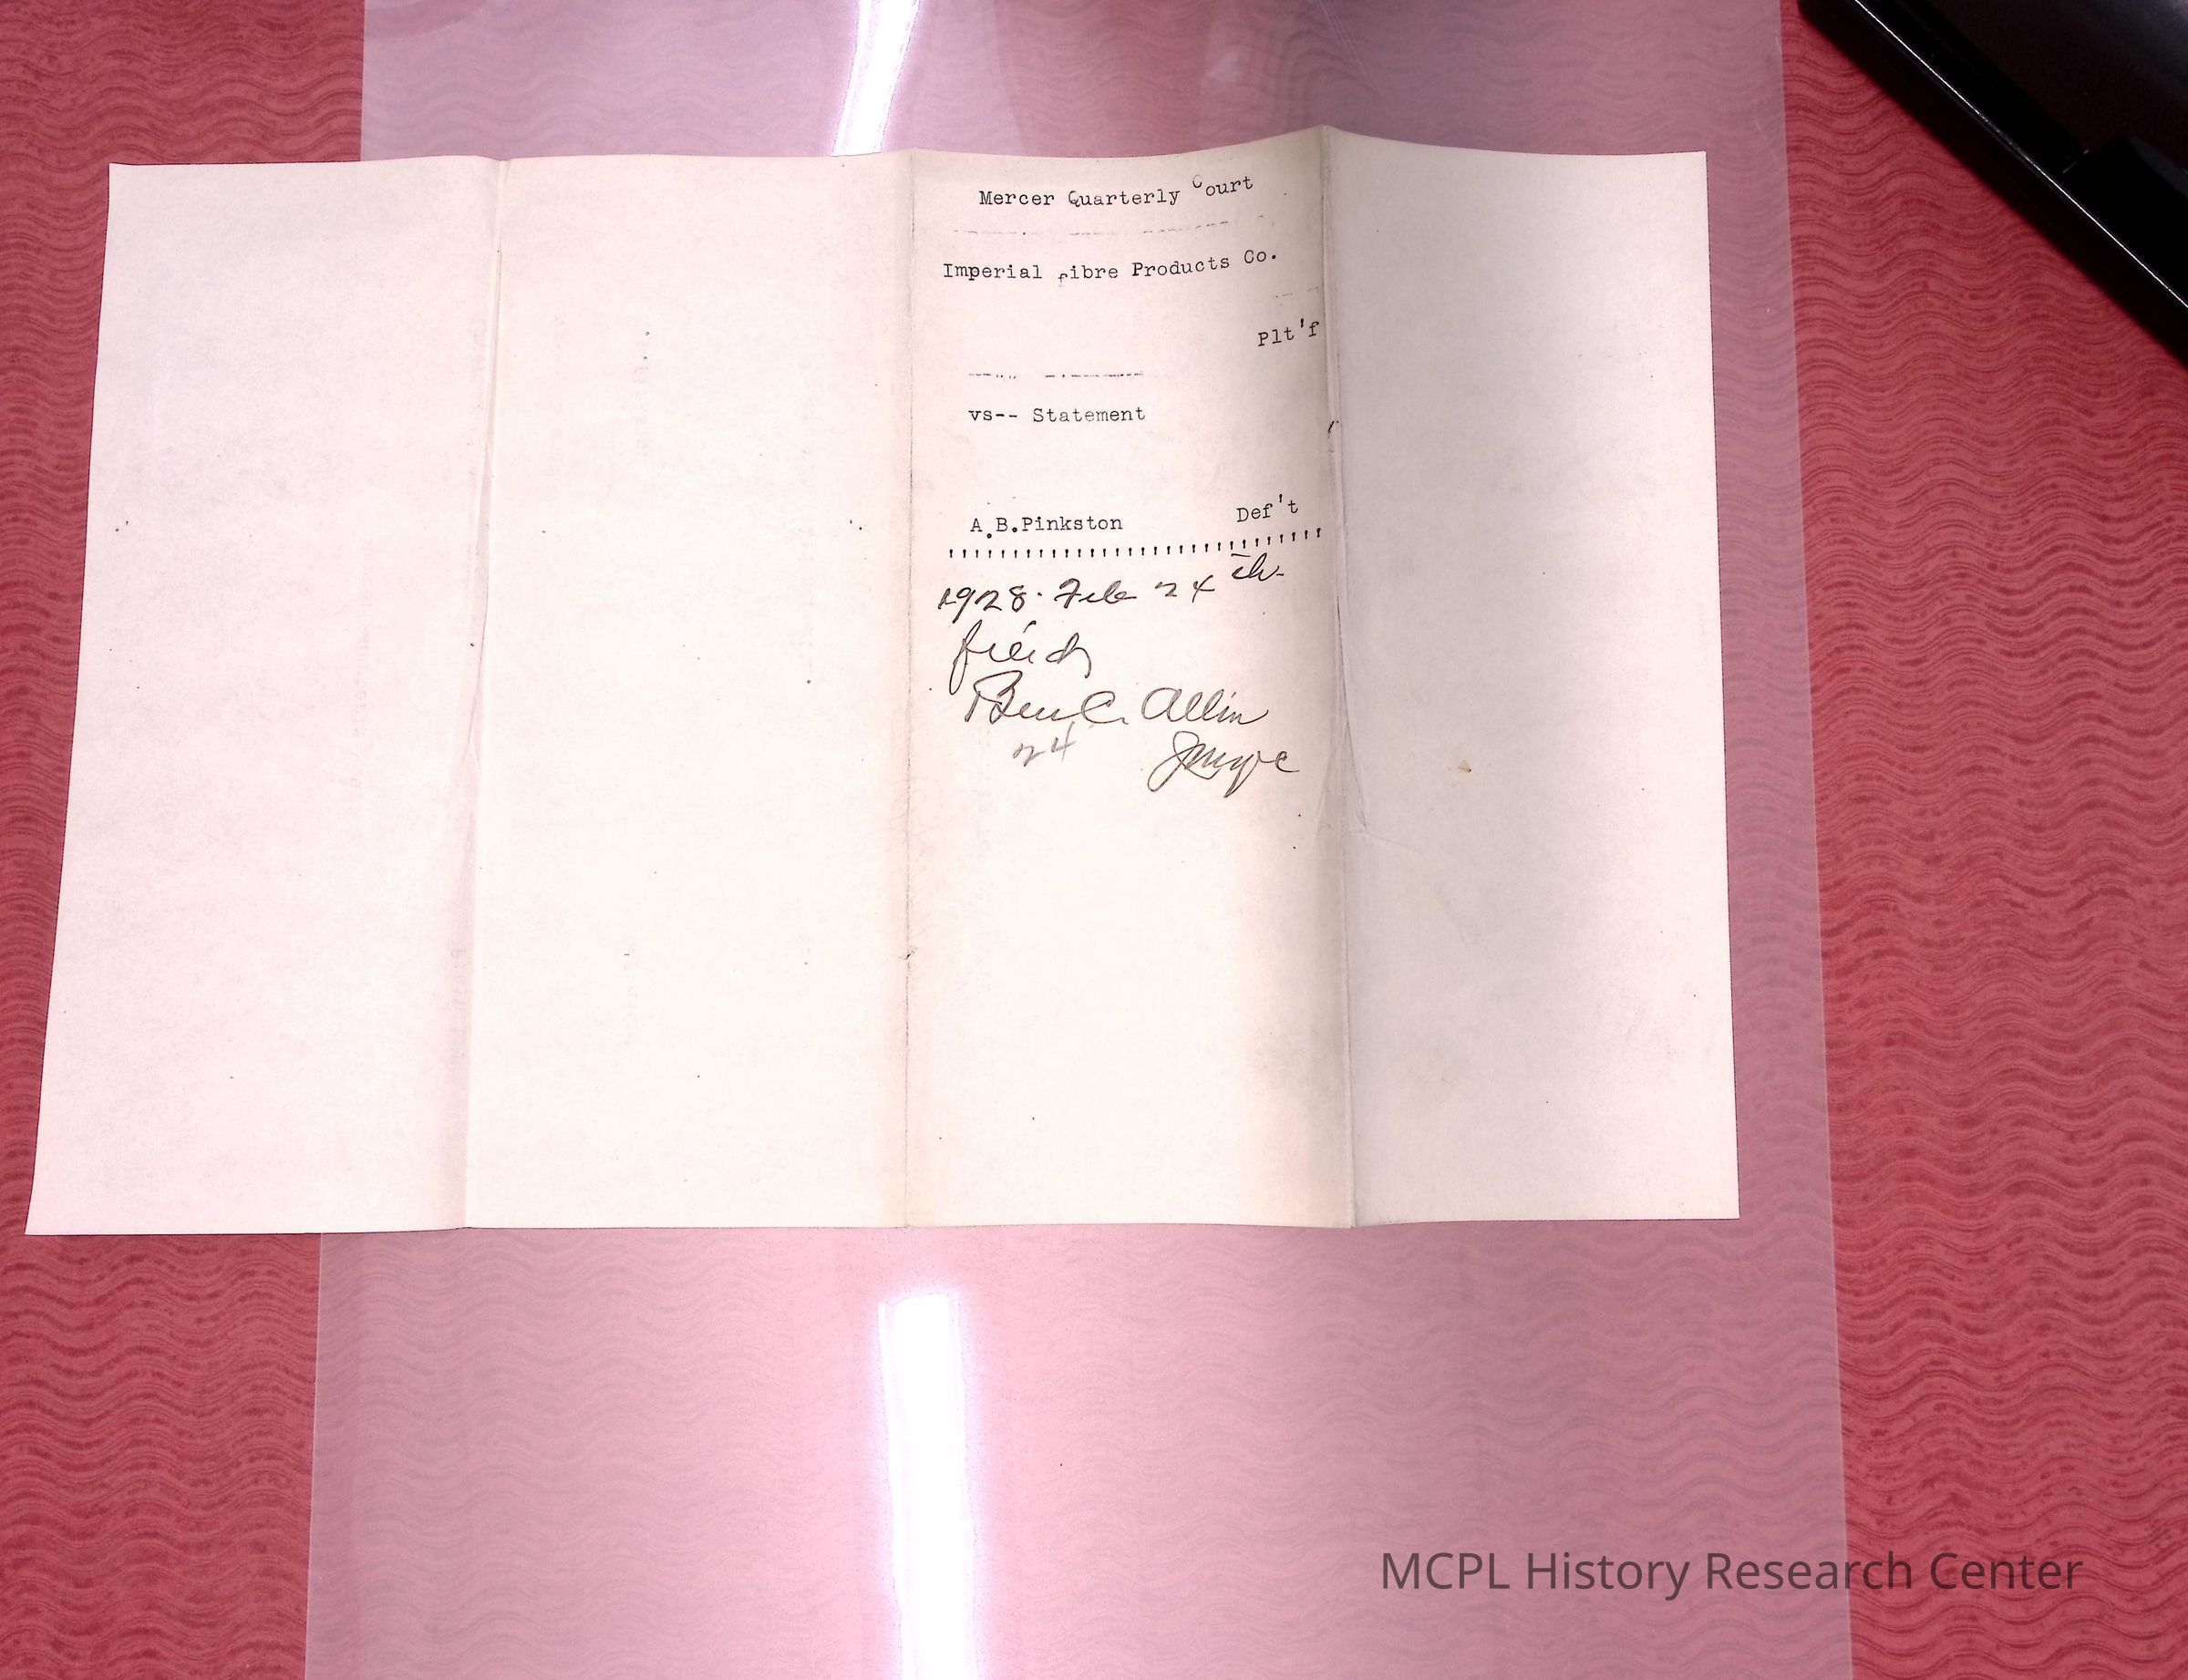 Mercer Quarterly Court
Imperial Fibre Products Co.
Plt'f
vs-- Statement
A.B.Pinkston Def't
''''''''''''''''''''''''''''''
1928. Feb 24th
filed
Ben C. Allin
24 Judge
MCPL History Research Center